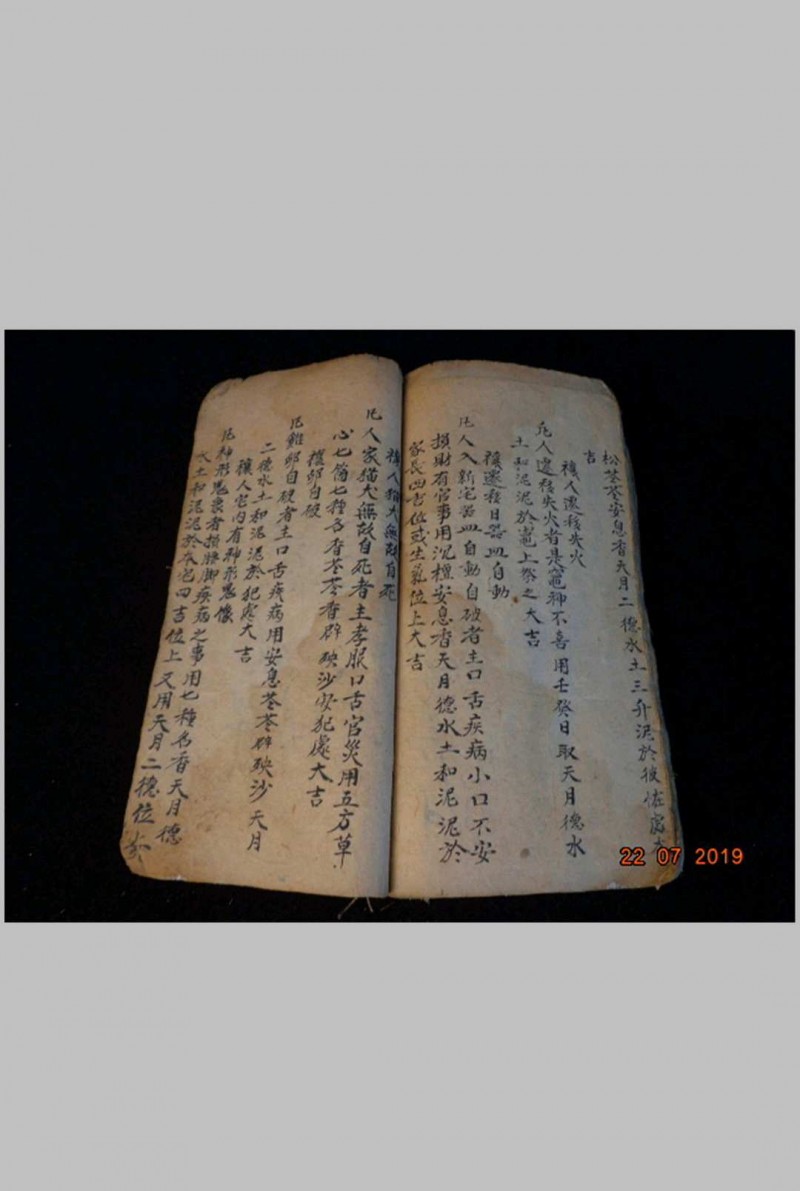 松苓苓安息香天月二德水土三升泥於彼怪處大
吉
禳人遷移失火
凡人遷移失火者是竈神不善用壬癸日取天月德水
土和泥泥於竈上祭之大吉
禳遷移日器皿自動
凡人入新宅器皿自動自破者主口舌疾病小口不安
損財有官事用沉檀安息香天月德水土和泥泥於
家長四吉位或生氣位上大吉
禳人猫犬無故自死
凡人家猫犬無故自死者主孝服口舌官災用五方草
心七個七種名香苓苓香辟殃沙安犯處大吉
禳卵自硬
凡雞卵自硬者主口舌疾病用安息苓苓辟殃沙天月
二德水土和泥泥於犯處大吉
禳人宅内有神形鬼像
凡神形鬼象者損腰脚疾病之事用七種名香天月德
水土和泥泥於本宅四吉位上又用天月二德位
22 07 2019